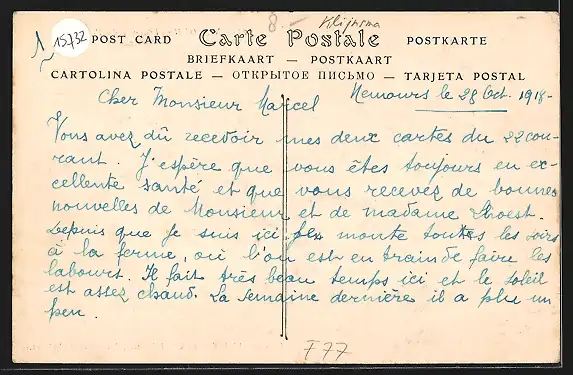 8-
Klijnsma
15732
POST CARD Carte Postale POSTKARTE
BRIEFKAART — POSTKAART
CARTOLINA POSTALE — ОТКРЫТОЕ ПИСЬМО — TARJETA POSTAL
Nemours le 28 Oct. 1918-
Cher Monsieur Marcel
Vous avez dû recevoir mes deux cartes du 22 cou-
rant. J'espère que vous êtes toujours en ex-
cellente santé et que vous recevez de bonnes
nouvelles de Monsieur et de madame
Depuis que je suis ici je monte toutes les soirs
à la ferme, où l'on est en train de faire les
labours. Il fait très beau temps ici et le soleil
est assez chaud. La semaine dernière il a plu un
peu.
F77